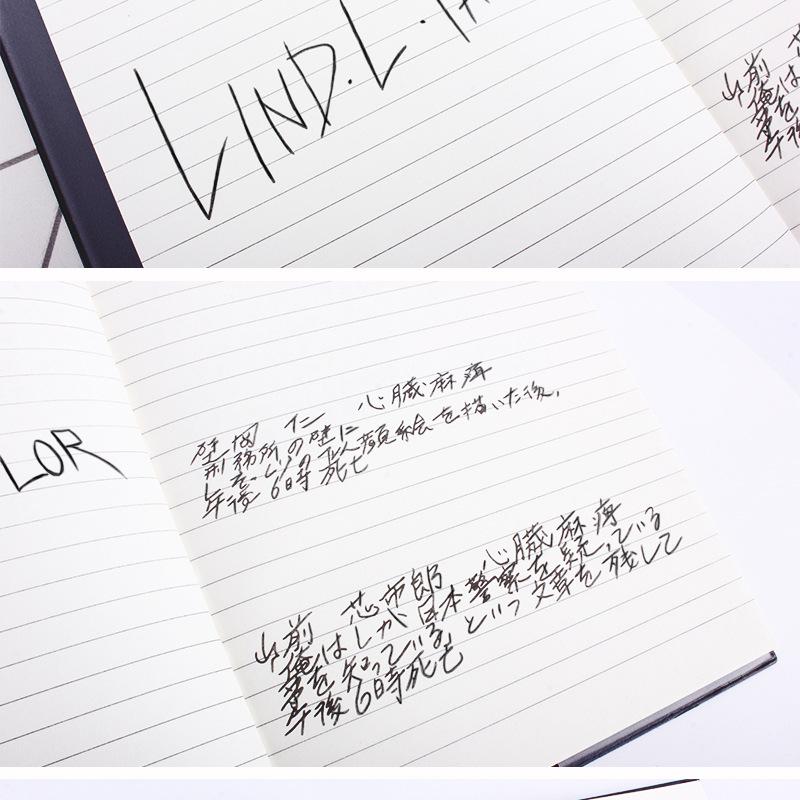 LIND.L.TA
山前
俺は
事を
午後
LOR
心臓麻痺
刑務所の壁に
顔絵を描いた後、
午後6時死亡
山前 心臓麻痺
俺はしが日本警察を疑っている
事を知っている、という文章を残して
午後6時死亡